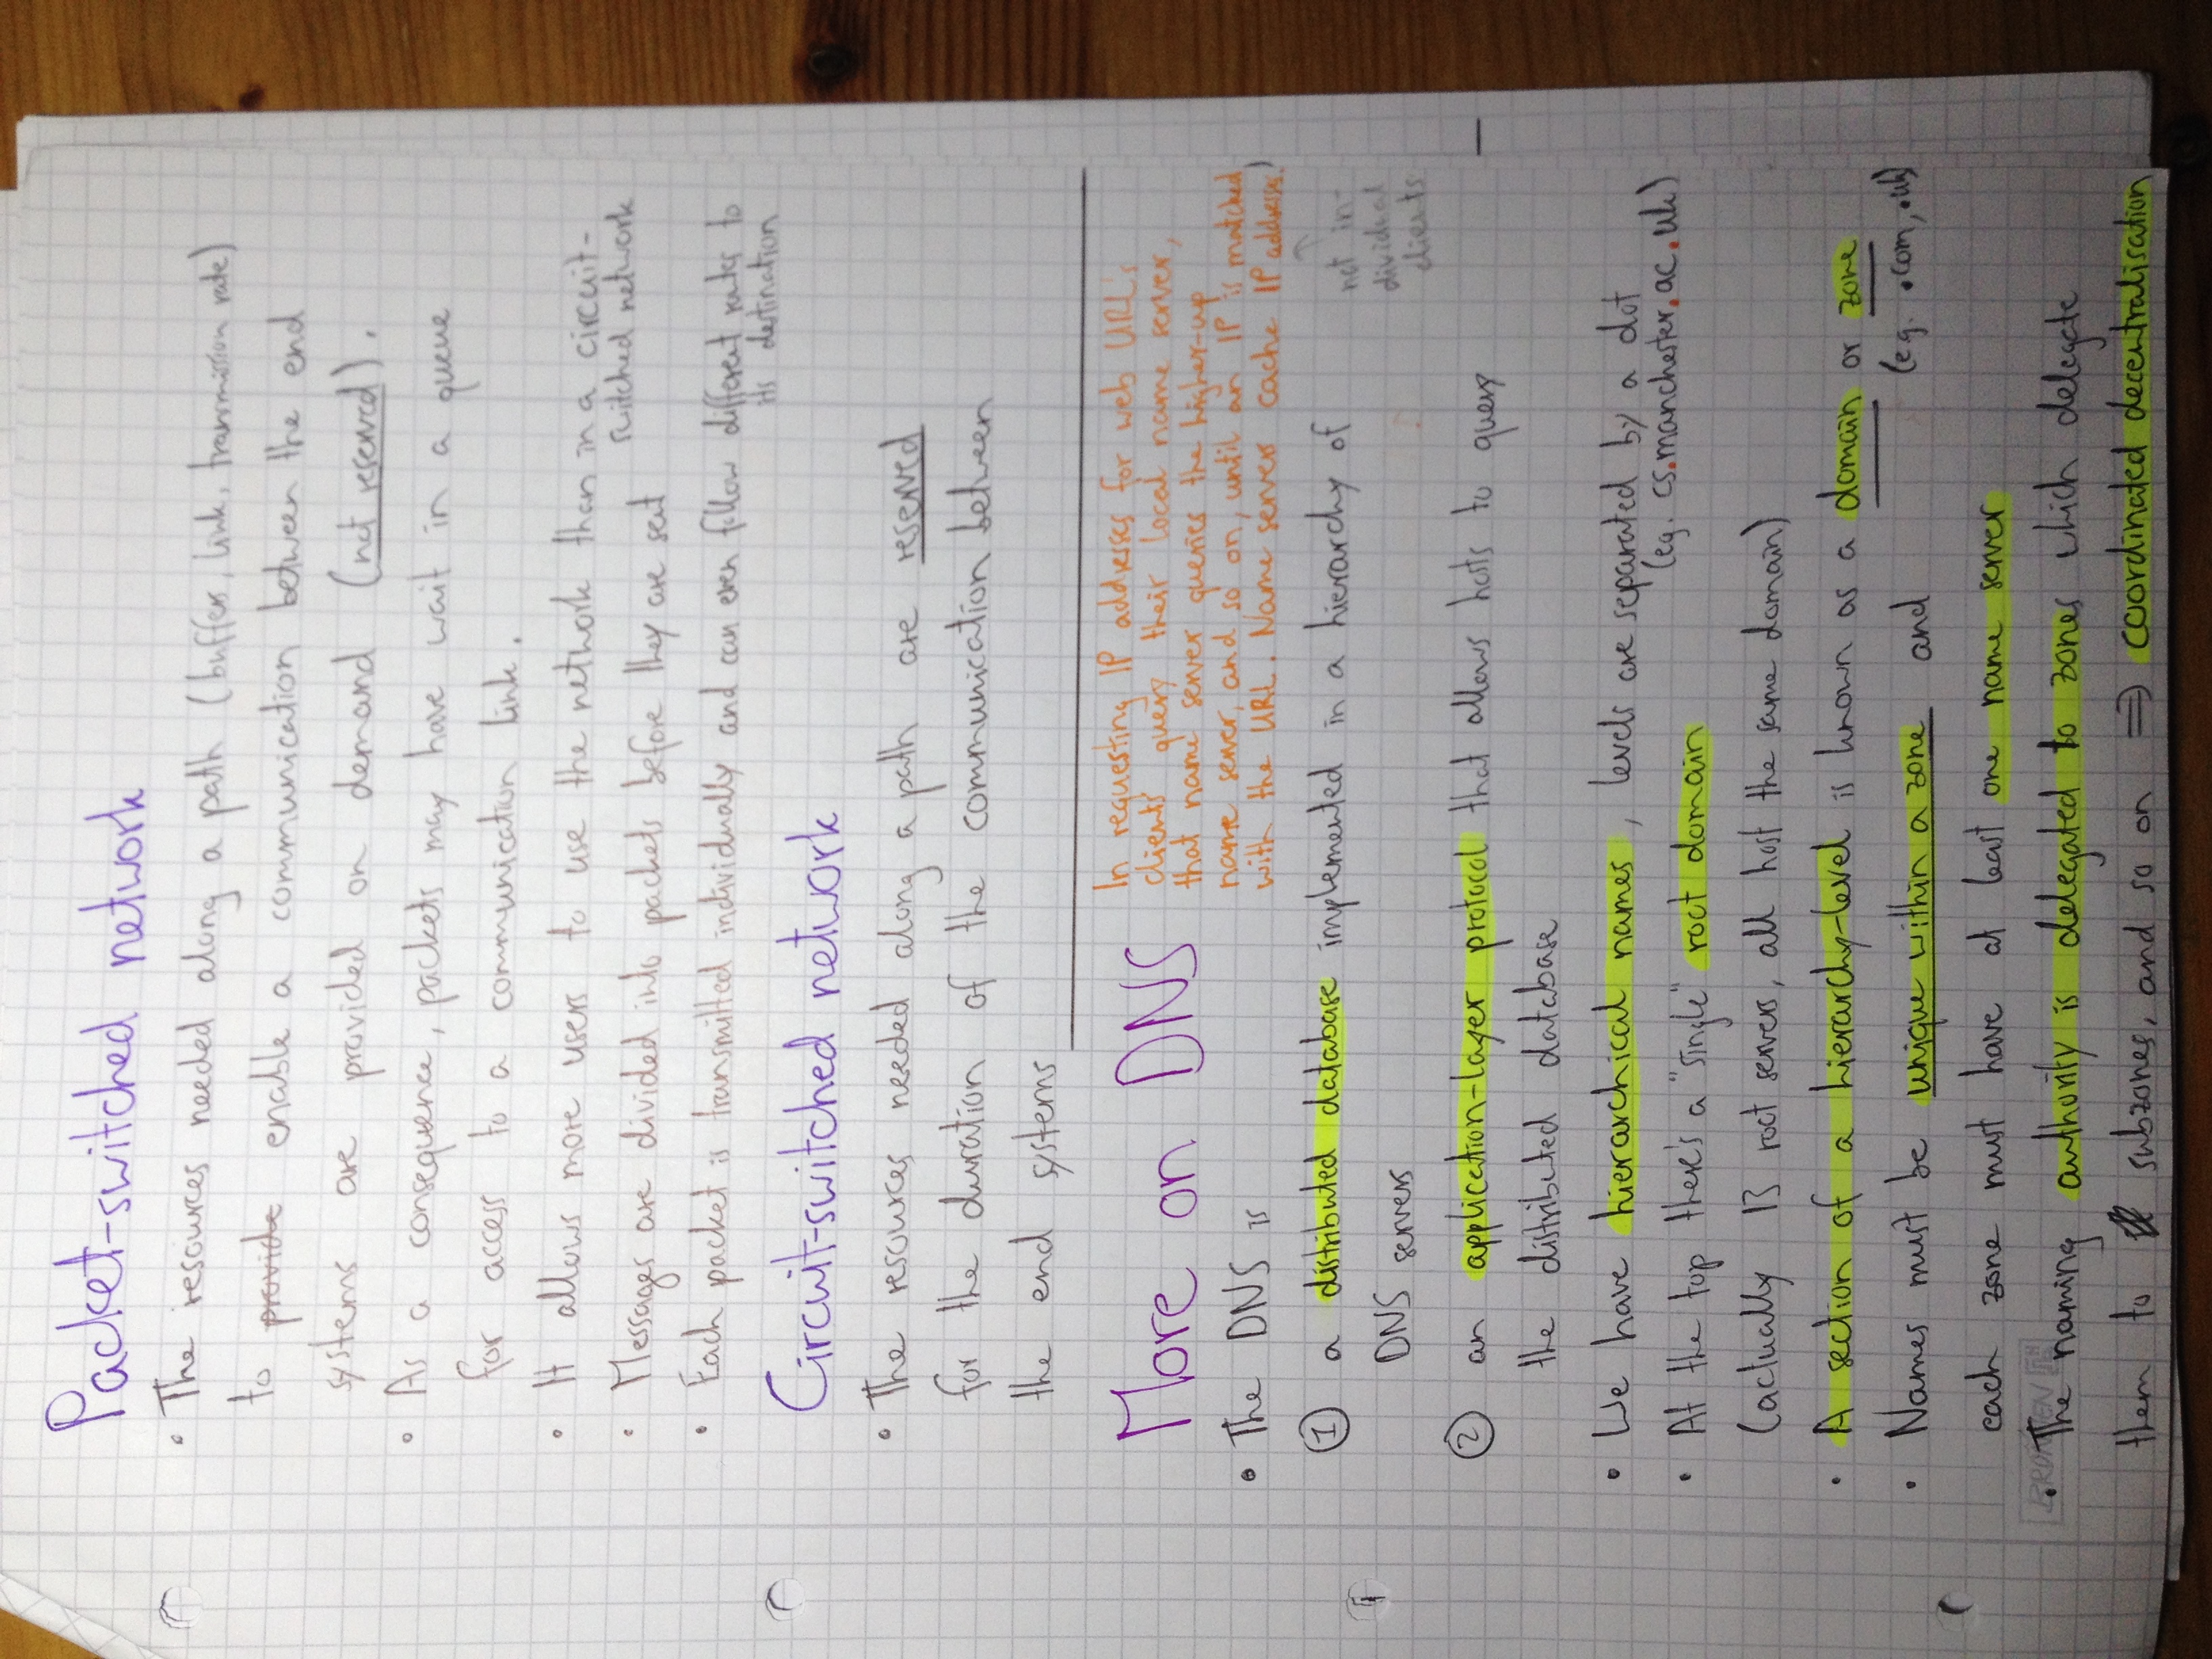 Packet-switched network
• The resources needed along a path (buffer, link, transmission rate)
to provide enable a communication between the end
systems are provided on demand (not reserved).
• As a consequence, packets may have wait in a queue
for access to a communication link.
• It allows more users to use the network than in a circuit-
switched network
• Messages are divided into packets before they are sent
• Each packet is transmitted individually and can even follow different routes to
its destination
Circuit-switched network
• The resources needed along a path are reserved
for the duration of the communication between
the end systems
More on DNS
In requesting IP addresses for web URL's
clients query their local name server,
that name server queries the higher-up
name server, and so on, until an IP is matched
with the URL. Name servers cache IP addresses.)
• The DNS is
① a distributed database implemented in a hierarchy of
DNS servers
not in-
dividual
clients
② an application-layer protocol that allows hosts to query
the distributed database
• We have hierarchical names, levels are separated by a dot
(eg. cs.manchester.ac.uk)
• At the top there's a "single" root domain
(actually 13 root servers, all host the same domain)
• A section of a hierarchy-level is known as a domain or zone
(eg. .com, .uk)
• Names must be unique within a zone and
each zone must have at least one name server
• The naming authority is delegated to zones which delegate
them to subzones, and so on ⇒ coordinated decentralisation